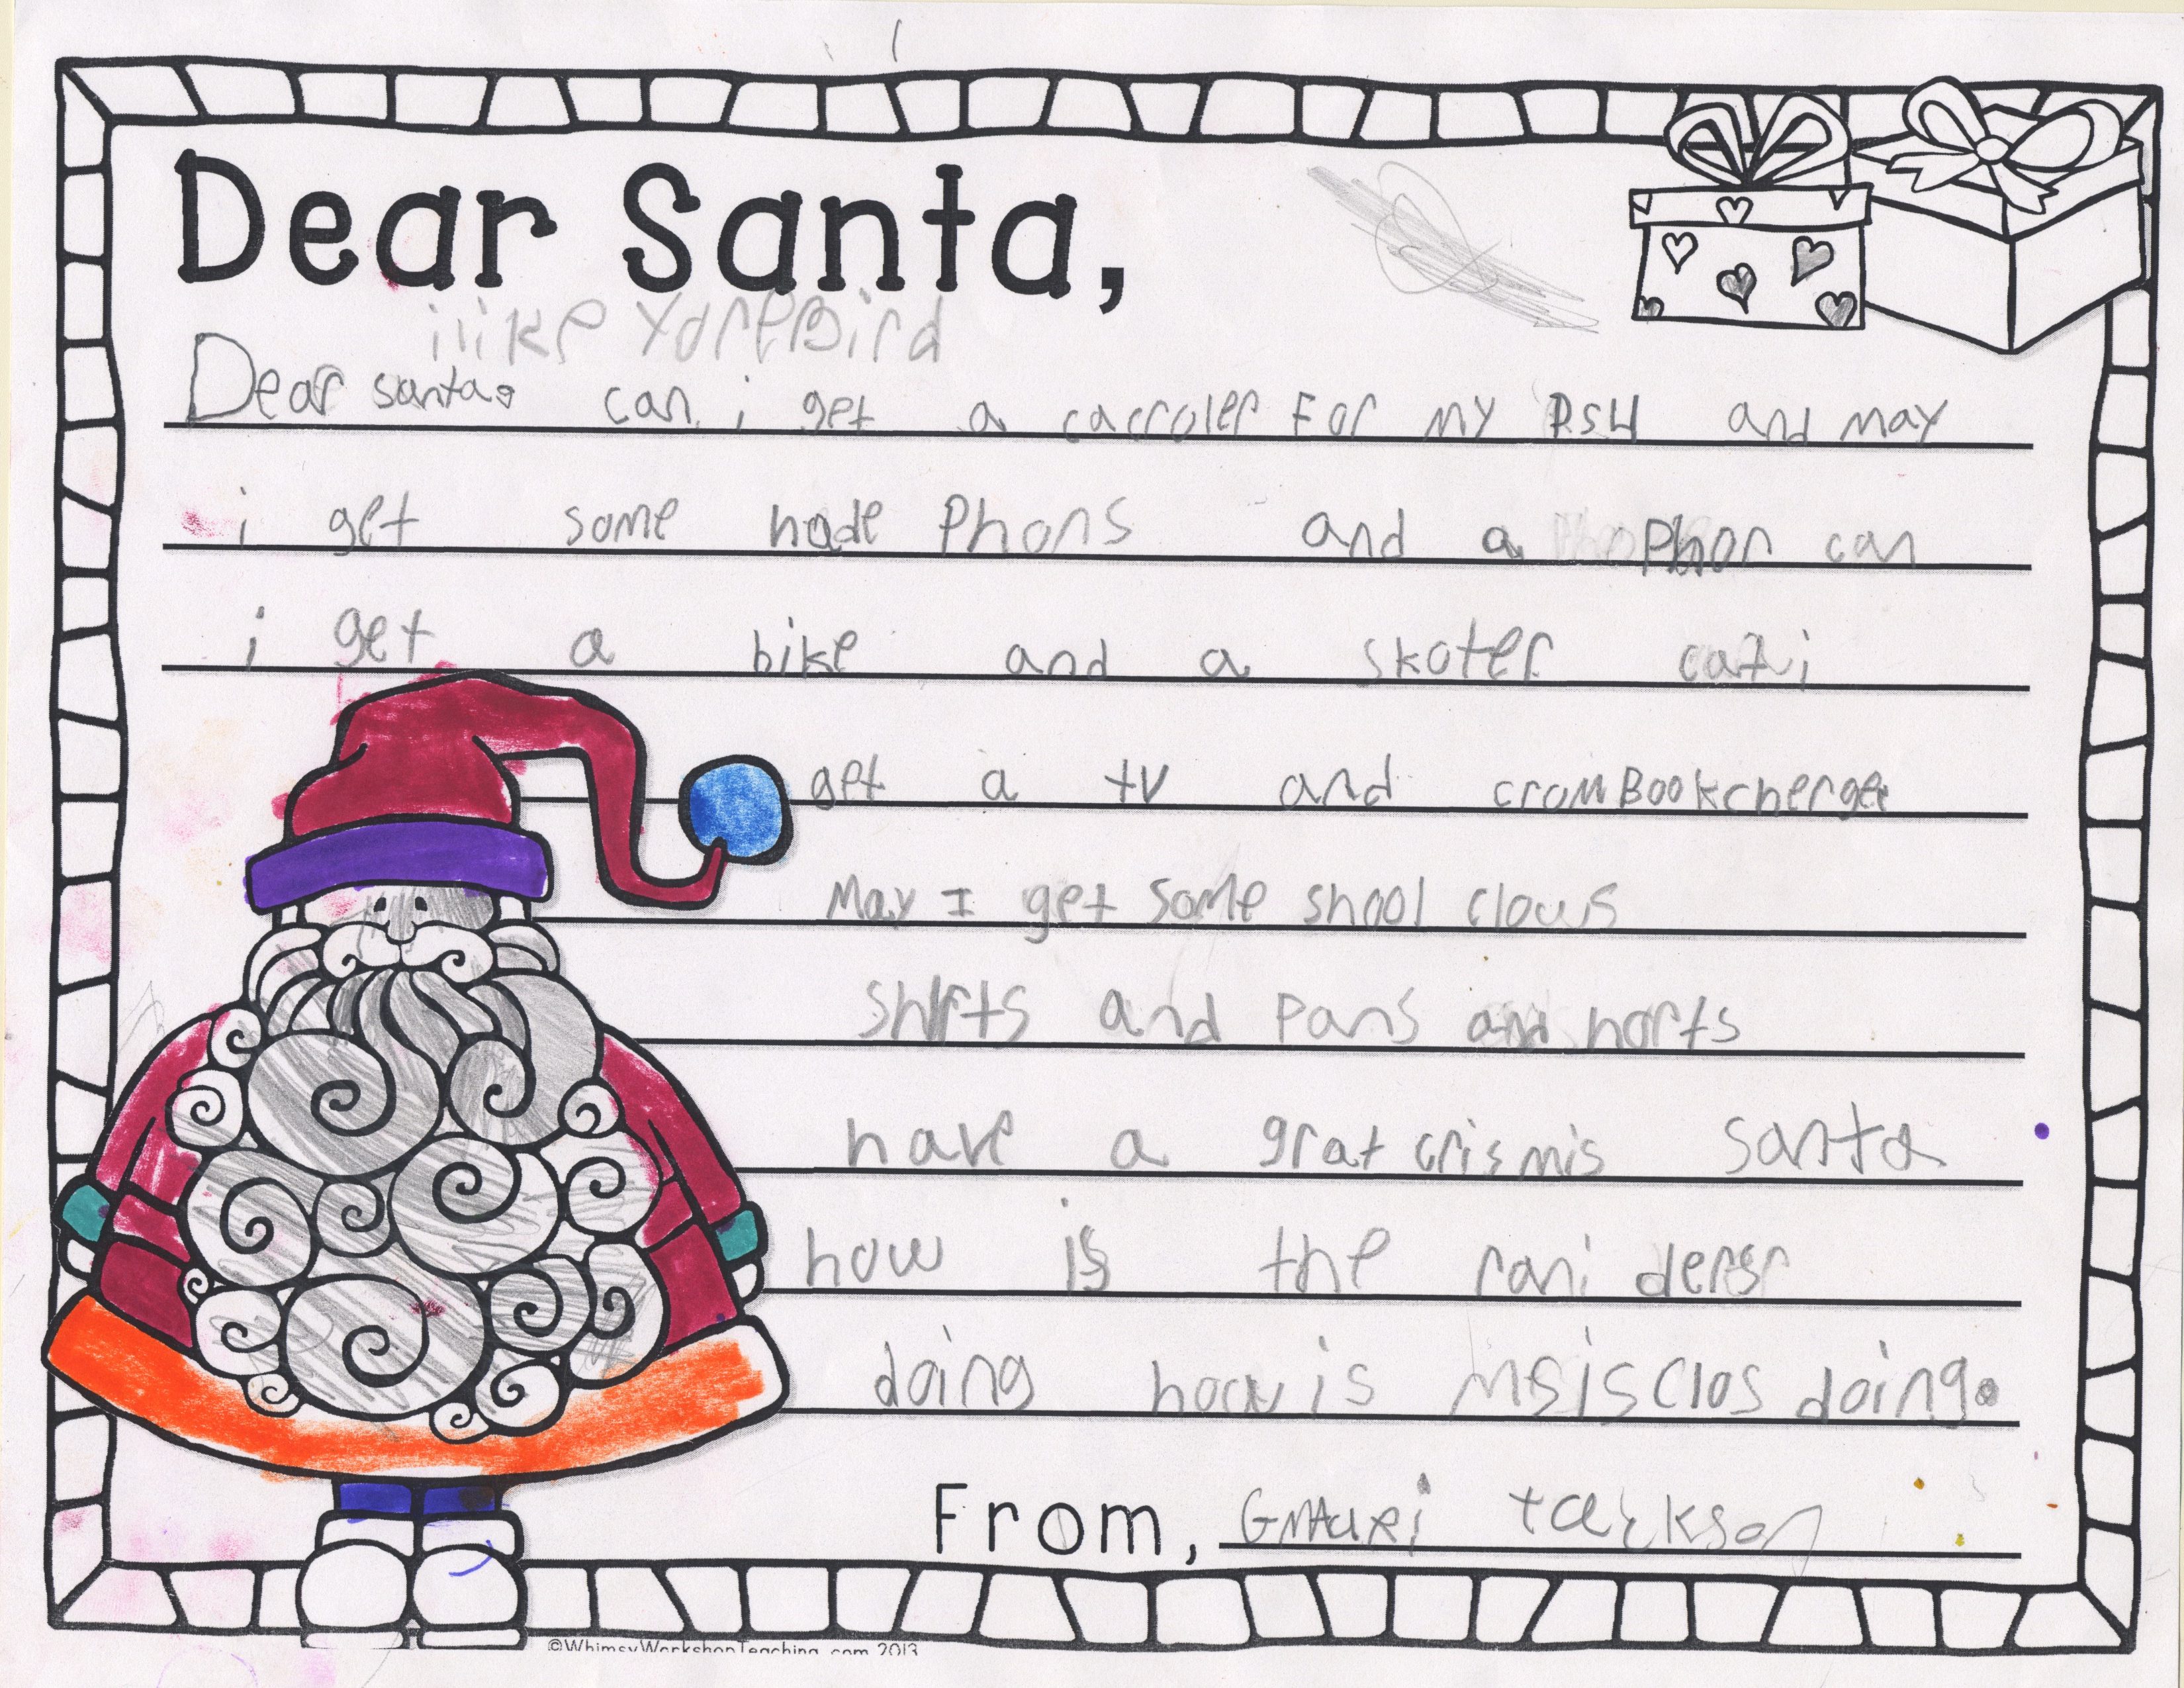 Dear Santa,
i like YoreBird
Dear santa. can i get a carroler For my PS4 and may
i get some hade Phons and a Phon can
i get a bike and a skoter can i
get a tv and cromBookcherger
May I get some shool clous
shirts and Pans and horts
have a grat crismis santa
how is the rani ders
doing how is MSisClos doing.
From,
©WhimsyWorkshopTeaching.com 2013